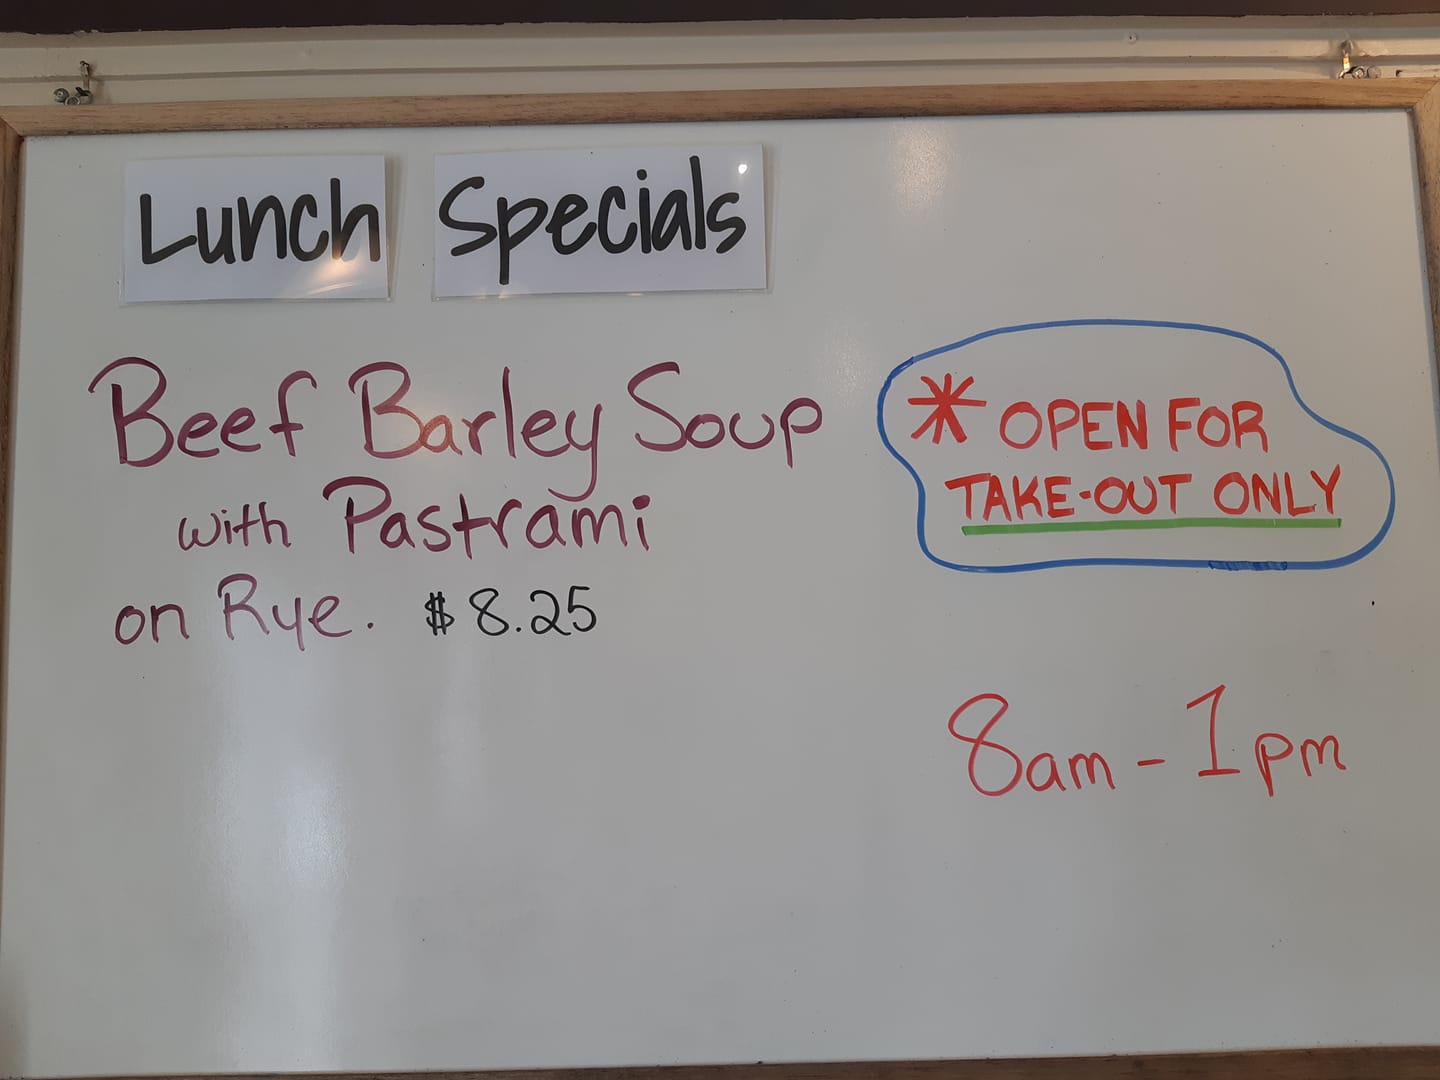 Lunch Specials
Beef Barley Soup
with Pastrami
on Rye. $8.25
* OPEN FOR
TAKE-OUT ONLY
8am - 1pm